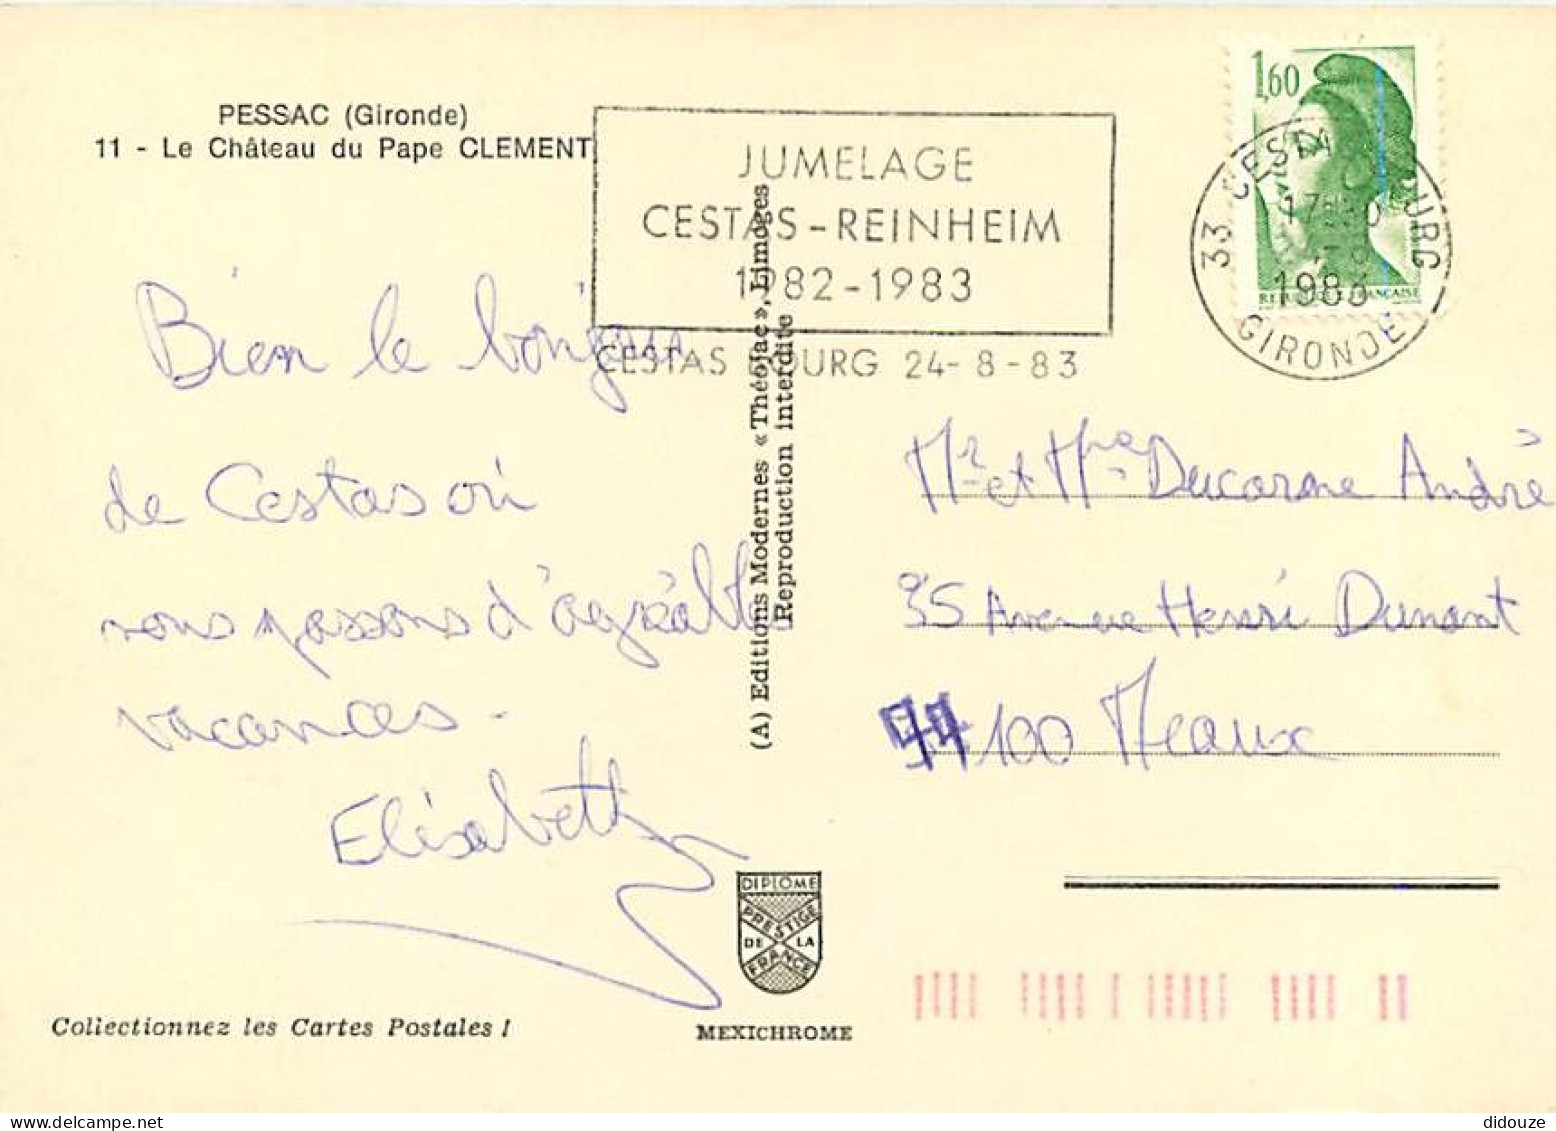 PESSAC (Gironde)
11 - Le Château du Pape CLEMENT
JUMELAGE
CESTAS-REINHEIM
1982-1983
CESTAS BOURG 24-8-83
1,60
33 CESTAS BOURG
1983
GIRONDE
Bien le bonjour
de Cestas où
nous passons d'agréables
vacances.
Elisabeth
(A) Editions Modernes « Théojac », Limoges
Reproduction interdite
Mr et Mme Ducarne André
35 Avenue Henri Dunant
77100 Meaux
DIPLÔME
PRESTIGE
DE LA
FRANCE
Collectionnez les Cartes Postales !
MEXICHROME
didouze